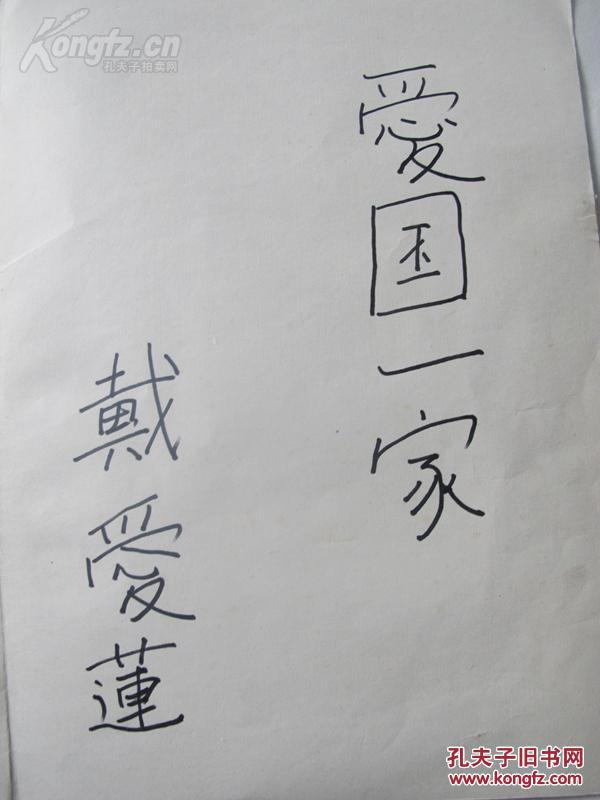 愛国一家
戴愛蓮
Kongfz.cn
孔夫子拍卖网
孔夫子旧书网
www.kongfz.com